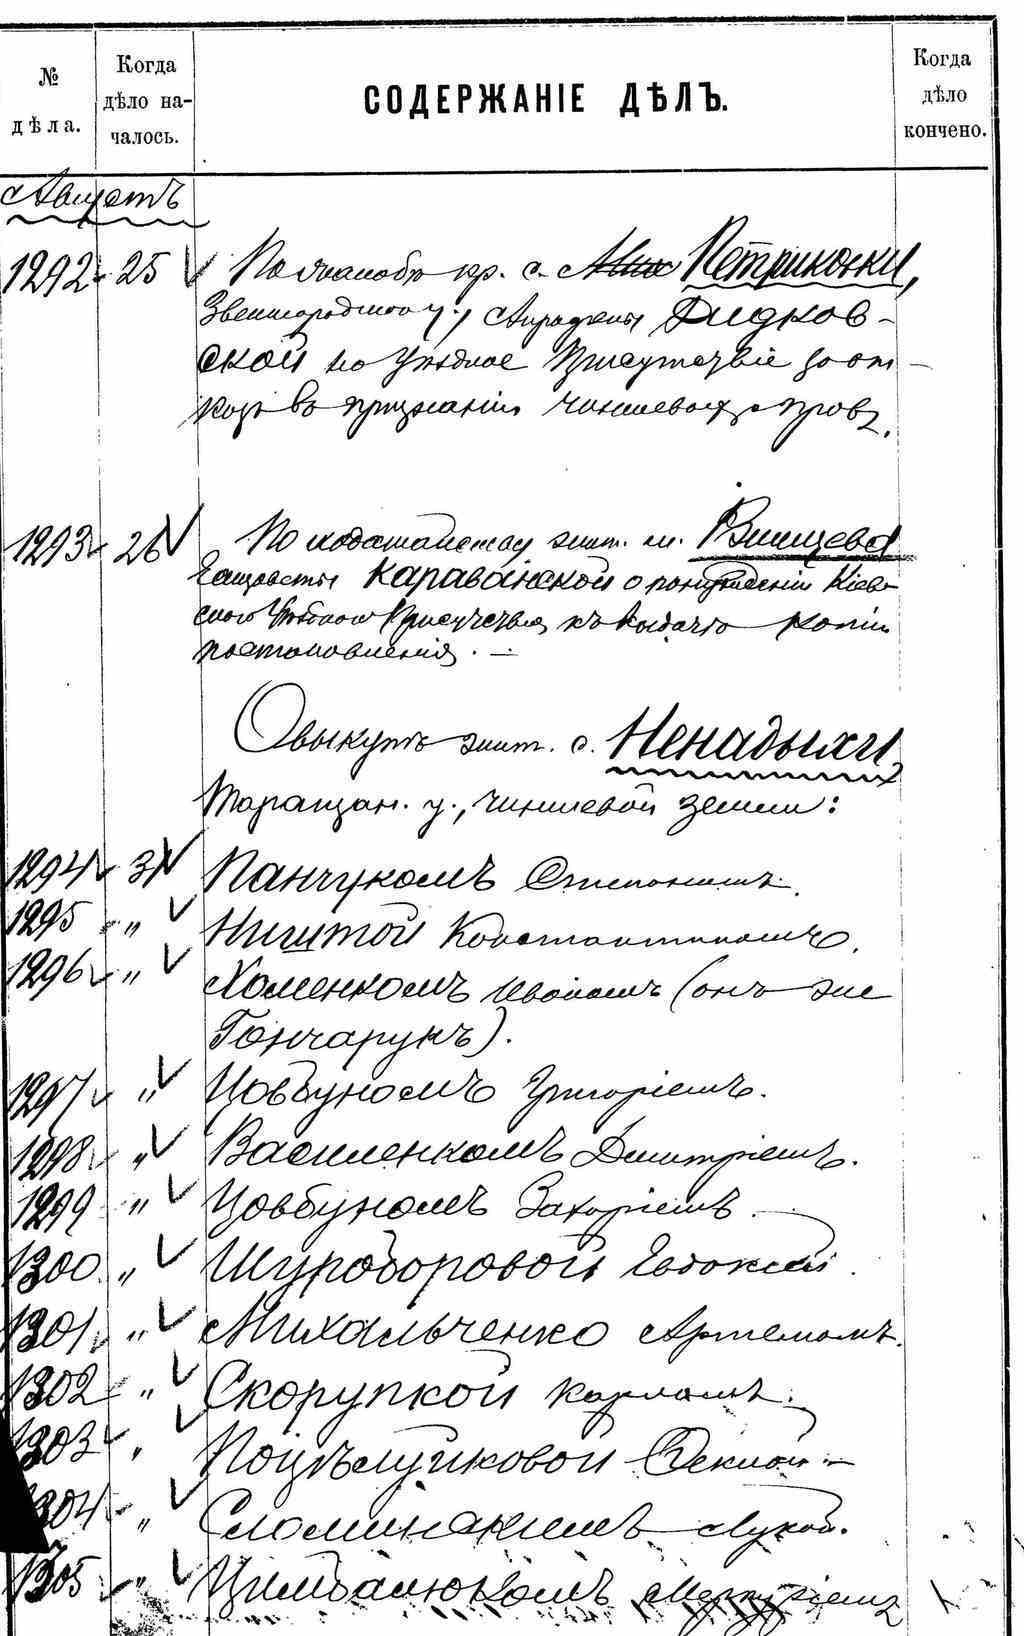 № дѣла.
Когда дѣло на-
чалось.
СОДЕРЖАНІЕ ДѢЛЪ.
Когда дѣло кончено.
Августъ
1292 25 По жалобѣ кр. с. Петриковки,
Звенигородского у.,
Дидков-
ской на Уѣздное Присутствіе за от-
казъ въ признаніи чиншевыхъ правъ.
1293 26 По ходатайству жит. м.
Караваинской о понужденіи Кіев-
ского Уѣздного Присутствія къ выдачѣ копіи
постановленія. —
О выкупѣ жит. с. Ненадыхи,
Таращан. у., чиншевой земли:
1294 31 Панчукомъ Степаномъ.
1295 " Никитой Константиномъ.
1296 " Хоменкомъ Иваномъ (онъ же
Гончарукъ).
1297 " Цовбуномъ Григоріемъ.
1298 " Василенкомъ Дмитріемъ.
1299 " Цовбуномъ Захаріемъ.
1300 " Щуроборовой Евдокіей.
1301 " Михальченко Артемомъ.
1302 " Скорупкой Карпомъ.
1303 " Поцѣлуйковой Феклой
1304 " Лукой.
1305 " Цимбалюкомъ Меркуріемъ